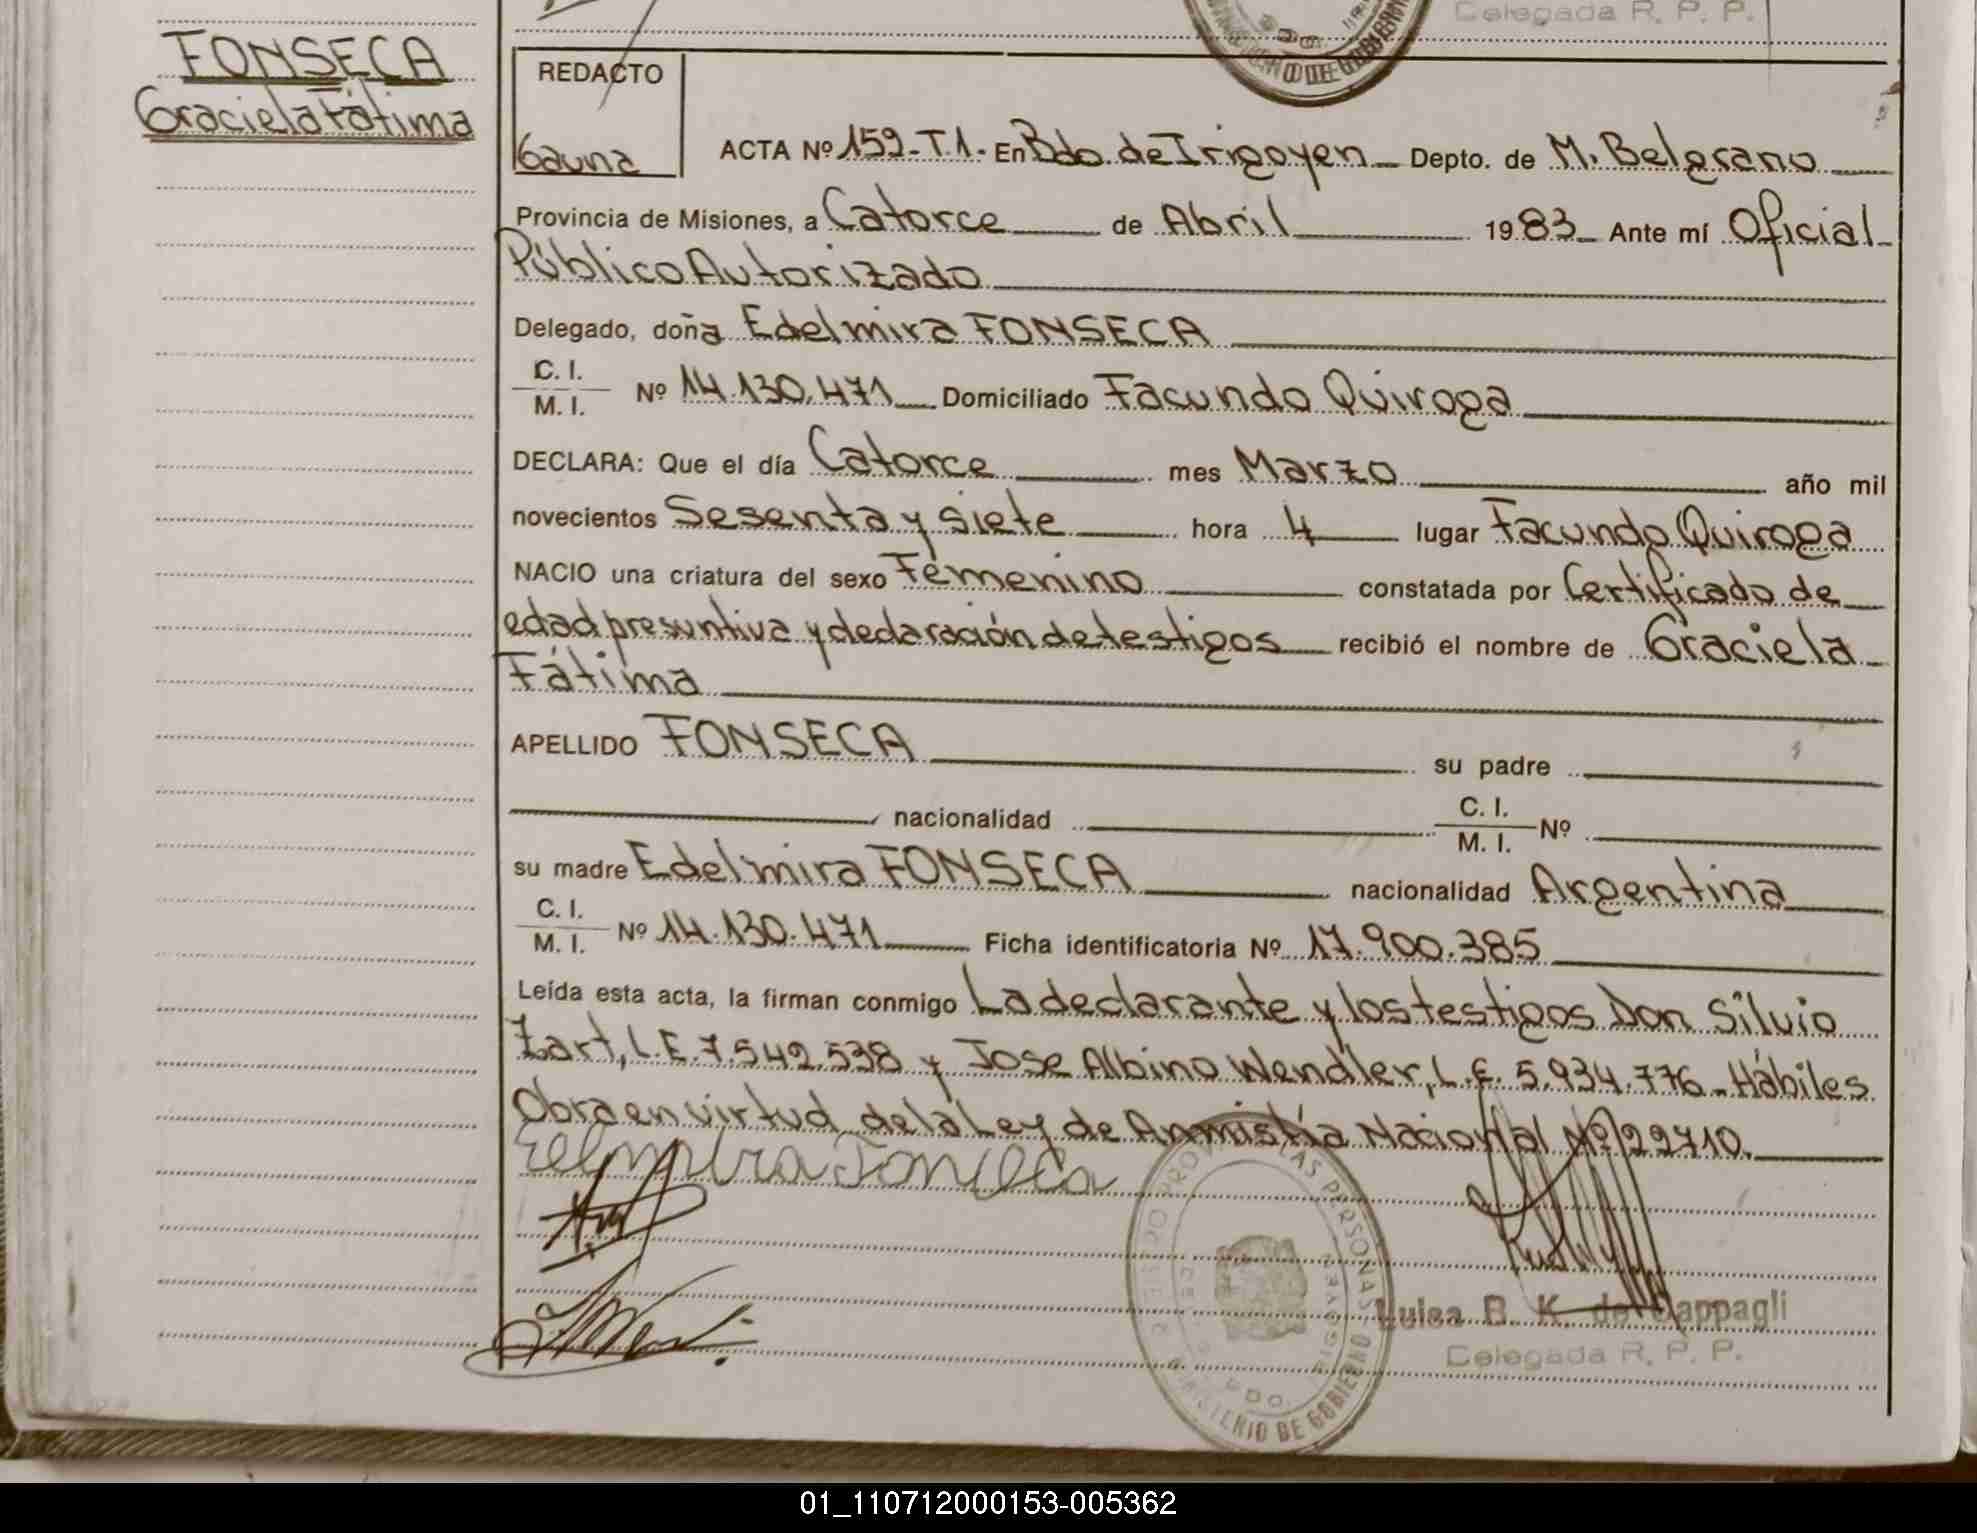 Delegada R. P. P.
FONSECA
Graciela Fátima
REDACTO
Gauna
ACTA Nº 159-T.1. En Bdo. de Irigoyen Depto. de M. Belgrano
Provincia de Misiones, a Catorce de Abril 1983 Ante mí Oficial
Público Autorizado
Delegado, doña Edelmira FONSECA
C. I.
M. I. Nº 14.130.471 Domiciliado Facundo Quiroga
DECLARA: Que el día Catorce mes Marzo año mil
novecientos Sesenta y siete hora 4 lugar Facundo Quiroga
NACIO una criatura del sexo Femenino constatada por Certificado de
edad presuntiva y declaración de testigos recibió el nombre de Graciela
Fátima
APELLIDO FONSECA su padre
nacionalidad C. I.
M. I. Nº
su madre Edelmira FONSECA nacionalidad Argentina
C. I.
M. I. Nº 14.130.471 Ficha identificatoria Nº 17.900.385
Leída esta acta, la firman conmigo La declarante y los testigos Don Silvio
Zart, L.E. 7.542.538 y Jose Albino Wendler, L.E. 5.934.776 - Hábiles
Obra en virtud de la Ley de Anmistía Nacional Nº 22710.
Edelmira Fonseca
LAS PERSONAS
MINISTERIO DE GOBIERNO
Luisa B. K. de Cappagli
Delegada R. P. P.
01_110712000153-005362